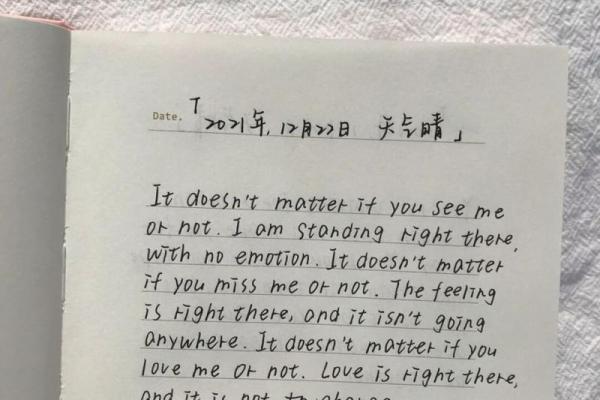 Date. 「2021年,12月22日 天气晴」
It doesn't matter if you see me
or not. I am standing right there,
with no emotion. It doesn't matter
if you miss me or not. The feeling
is right there, and it isn't going
anywhere. It doesn't matter if you
love me or not. Love is right there,
and it is not to change